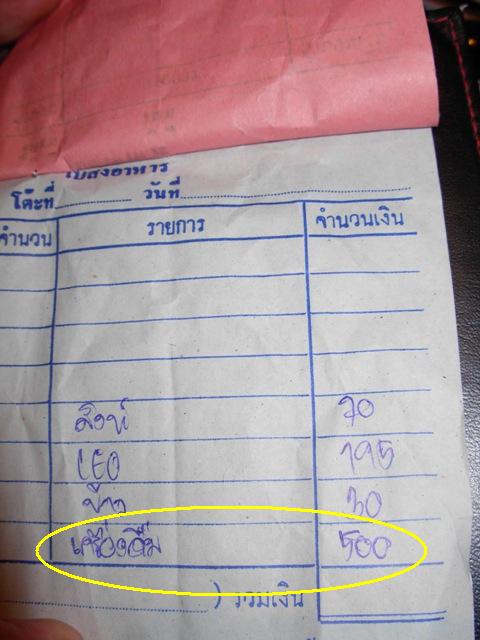 ใบสั่งอาหาร
โต๊ะที่ วันที่
จำนวน รายการ จำนวนเงิน
สิงห์ 70
LEO 195
ข้าว 30
เครื่องดื่ม 500
) รวมเงิน